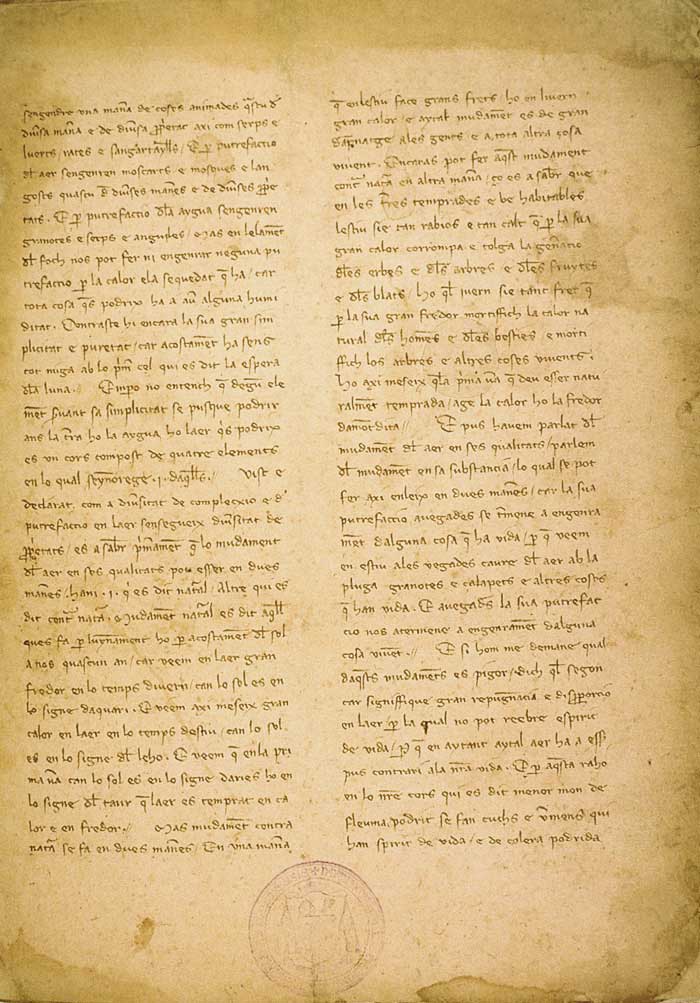 sengendre vna mana de coses animades q̄stu d̄
diu̓sa man̄a e de diu̓sa ꝓp̄etat axi com serps e
luerts / rates e
d̄l aer sengenren moscarts e mosques e lan
gosts quascu d̄ diu̓ses man̄es e de diu̓ses ꝓp̄e
tats . E ꝑ putrefaccio d̄la aygua sengenren
granotes e serps e anguiles / Mas en lelam̄et
d̄l foch nos pot fer ni engenrar neguna pu
trefaccio ꝑ la calor e la sequedat q̄ ha / car
tota cosa q̄s podrix ha a au̓ alguna humi
ditat . Contraste hi encara la sua gran sim
plicitat e puretat / car acostam̄et ha sens
tot miga ab lo p̓m cel qui es dit la espera
d̄la luna . // Empo no entench q̄ degu̅ ele
m̄et s̓uant sa simplicitat se pusque podrir
ans la tr̄a ho la aygua ho laer q̓s podrix
es vn cors compost de quatre elements
en lo qual seyn̄orege .j. daq̄lls . // Vist e
declarat com a diu̓sitat de complecxio e d̄
putrefaccio en laer sensegueix diu̓sitat de
ꝓp̄etats / es a sab̄r p̓mam̄ent q̄ lo mudament
d̄l aer en ses qualitats pou esser en dues
manēs / hani .j. q̓ es dit nat̄al / Altre qui es
dit cont̄ nat̄a . Mudam̄ent nat̄al es dit aq̄ll
ques fa ꝑ luȳnament ho ꝑ acostam̄et d̄l sol
a nos quascun an / car veem en laer gran
fredor en lo temps diuern / can lo sol es en
lo signe daquari . E veem axi meseix gran
calor en laer en lo temps destiu / can lo sol
es en lo signe d̄l leho . E veem q̄ en la pri
ma u̓a can lo sol es en lo signe daries ho en
lo signe d̄l taur q̄ laer es temprat en ca
lor e en fredor . // Mas mudam̄et contra
nat̄a se fa en dues man̄es / En vna man̄a
q̄ en lestiu face grans frets / ho en liuern
gran calor / e aytal mudam̄et es de gran
dapnatge a les gents e a tota altra cosa
viuent . Encaras pot fer aq̄st mudament
cont̄ nat̄a en altra man̄a / ço es a sab̄r que
en les tr̄es temprades e be habitables
lestiu sie tan rabios e tan calt q̄ ꝑ la sua
gran calor corrompa e tolga la gen̄acio
d̄les erbes e d̄ls arbres e d̄les fruytes
e d̄ls blats / ho q̄l iuern sie tant fret q̄
ꝑ la sua gran fredor mortiffich la calor na
tural d̄ls hom̄es e d̄les besties / e morti
fich los arbres e altres coses viuents /
ho axi meseix q̄la p̓ma u̓a q̄ deu esser natu
ralm̄et temprada / age la calor ho la fredor
damo̅t dita // E pus hauem parlat d̄l
mudam̄et d̄l aer en ses qualitats / parlem
d̄l mudam̄et en sa substancia / lo qual se pot
fer axi en leix en dues man̄es / car la sua
putrefaccio auegades se t̓mene a engenra
m̄et dalguna cosa q̄ ha vida / ꝑ q̄ veem
en estiu ales vegades caure d̄l aer ab la
pluga granotes e calapets e altres coses
q̄ han vida . E auegad̄s la sua putrefac
cio nos atermene a engenram̄ent dalguna
cosa viue̅t . // E si hom me demane qual
daq̄sts mudam̄ets es pigor / dich q̄l segon
car signiffique gran repugna̅cia e disp̄porcio
en laer ꝑ la qual no pot reebre espirit
de vida / P̄ q̄ en aytant aytal aer ha a ess̄
pus contrari a la nr̄a vida . E ꝑ aq̄sta raho
en lo nr̄e cors qui es dit menor mon de
fleuma podrit se fan cuchs e v̓mens qui
han spirit de vida / e de colera podrida